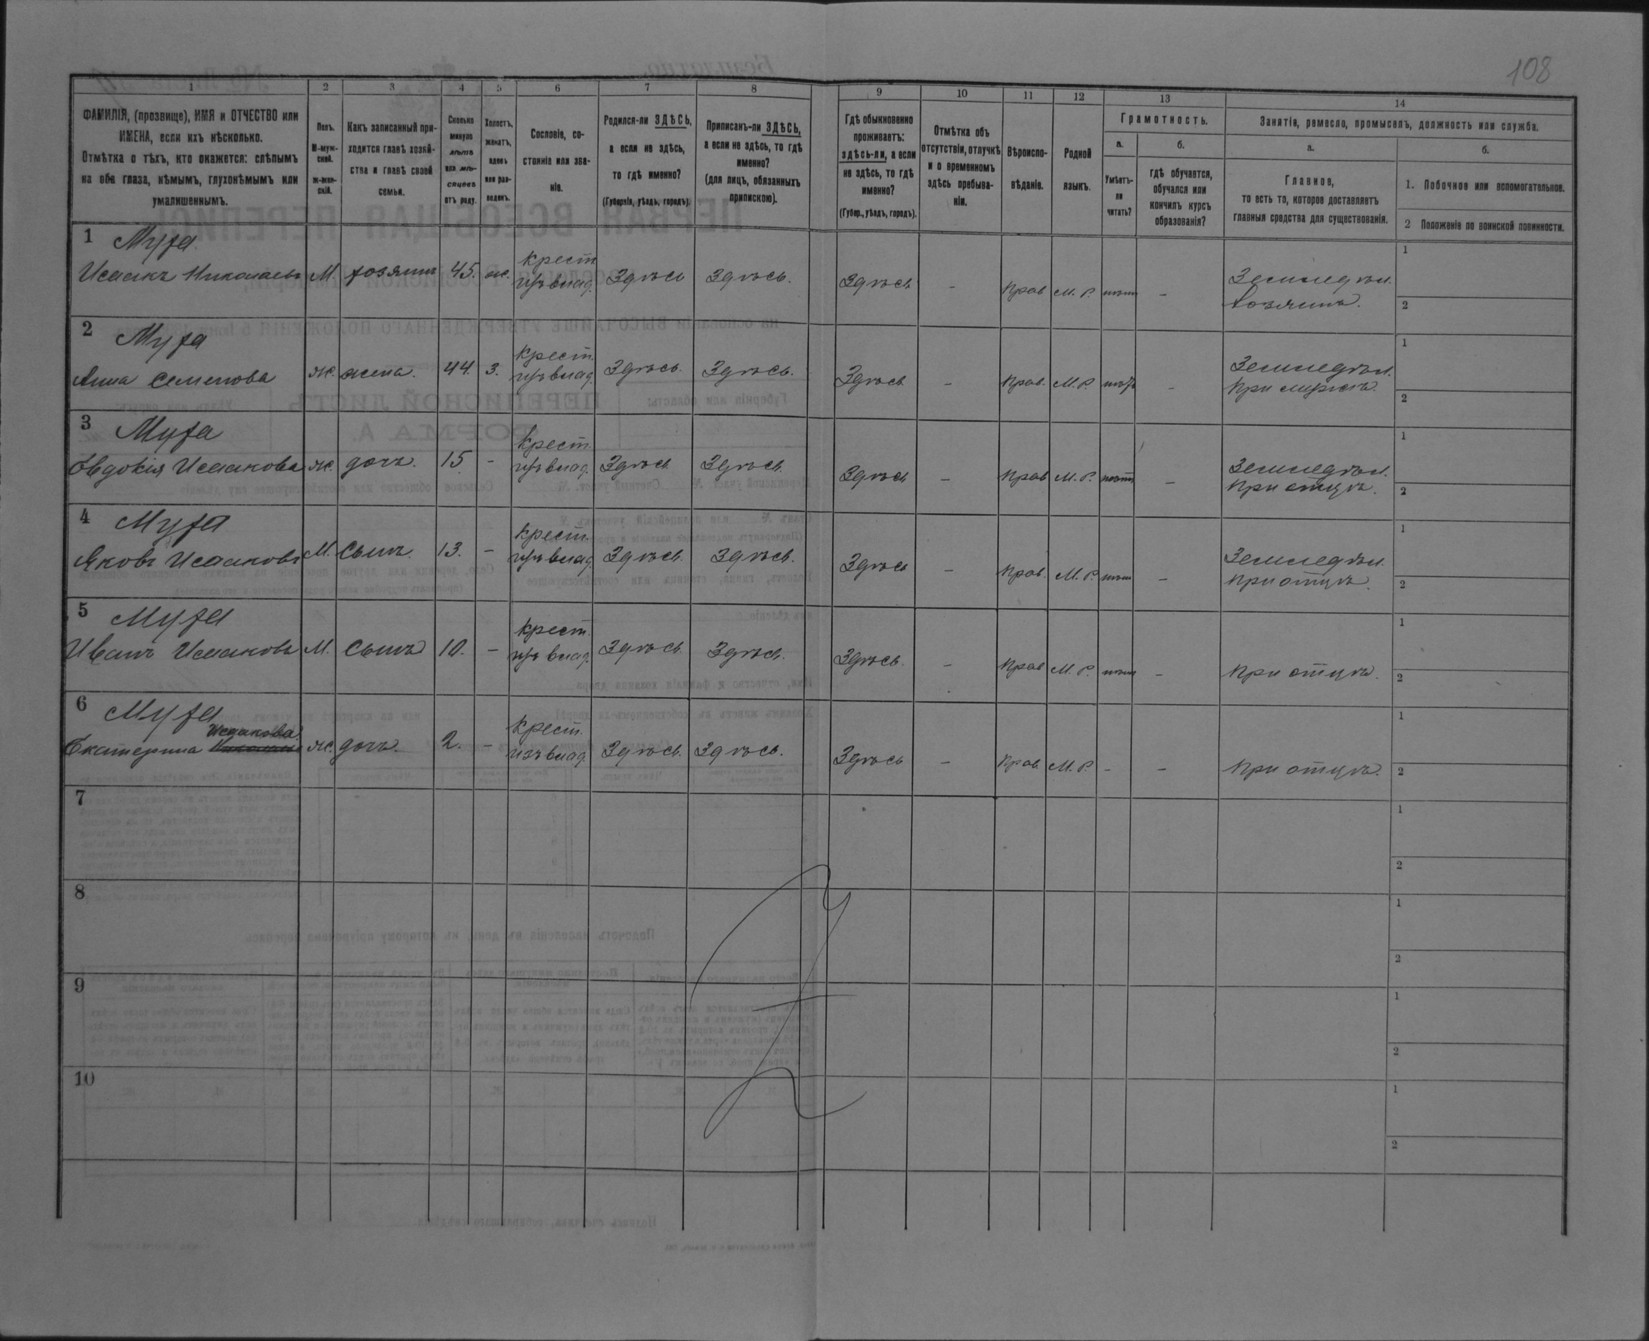 108
1
2
3
4
5
6
7
8
9
10
11
12
13
14
ФАМИЛІЯ, (прозвище), ИМЯ и ОТЧЕСТВО или
ИМЕНА, если ихъ нѣсколько.
Отмѣтка о тѣхъ, кто окажется: слѣпымъ
на оба глаза, нѣмымъ, глухонѣмымъ или
умалишеннымъ.
Полъ.
М-муж-
ской.
Ж-жен-
скій.
Какъ записанный при-
ходится главѣ хозяй-
ства и главѣ своей
семьи.
Сколько
минуло
лѣтъ
или мѣ-
сяцевъ
отъ роду.
Холостъ,
женатъ,
вдовъ
или раз-
веденъ.
Сословіе, со-
стояніе или зва-
ніе.
Родился-ли ЗДѢСЬ,
а если не здѣсь,
то гдѣ именно?
(Губернія, уѣздъ, городъ).
Приписанъ-ли ЗДѢСЬ,
а если не здѣсь, то гдѣ
именно?
(для лицъ, обязанныхъ
припискою).
Гдѣ обыкновенно
проживаетъ:
здѣсь-ли, а если
не здѣсь, то гдѣ
именно?
(Губер., уѣздъ, городъ).
Отмѣтка объ
отсутствіи, отлучкѣ
и о временномъ
здѣсь пребыва-
ніи.
Вѣроиспо-
вѣданіе.
Родной
языкъ.
Грамотность.
а.
Умѣетъ-
ли
читать?
б.
гдѣ обучается,
обучался или
кончилъ курсъ
образованія?
Занятіе, ремесло, промыселъ, должность или служба.
а.
Главное,
то есть то, которое доставляетъ
главныя средства для существованія.
б.
1. Побочное или вспомогательное.
2 Положеніе по воинской повинности.
1 Муха
Исаакъ Николаевъ М. хозяинъ 45. ж. крест. изъ влад. Здѣсь Здѣсь. Здѣсь - Прав М. Р. нѣтъ - Земледѣл. Хозяинъ. 1 2
2 Муха
Анна Семенова ж. жена. 44. з. крест. изъ влад. Здѣсь. Здѣсь. Здѣсь - Прав. М. Р. нѣтъ - Земледѣл. При мужѣ. 1 2
3 Муха
Евдокія Исаакова ж. дочь. 15. - крест. изъ влад. Здѣсь Здѣсь. Здѣсь - Прав М. Р. нѣтъ - Земледѣл. При отцѣ. 1 2
4 Муха
Яковъ Исааковъ М. Сынъ. 13. - крест. изъ влад. Здѣсь. Здѣсь. Здѣсь - Прав. М. Р. нѣтъ - Земледѣл. при отцѣ. 1 2
5 Муха
Иванъ Исааковъ М. Сынъ 10. - крест. изъ влад. Здѣсь. Здѣсь. Здѣсь. - Прав М. Р. нѣтъ - При отцѣ. 1 2
6 Муха
Исаакова
Екатерина ж. дочь. 2. - крест. изъ влад. Здѣсь. Здѣсь. Здѣсь - Прав М. Р. - - При отцѣ. 1 2
7 1 2
8 1 2
9 1 2
10 1 2